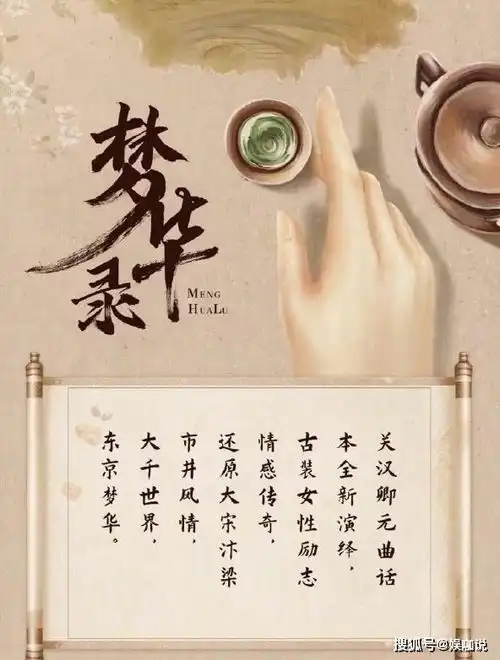 梦华录
MENG
HUALU
关汉卿元曲话
本全新演绎，
古装女性励志
情感传奇，
还原大宋汴梁
市井风情，
大千世界，
东京梦华。
搜狐号@娱咖说